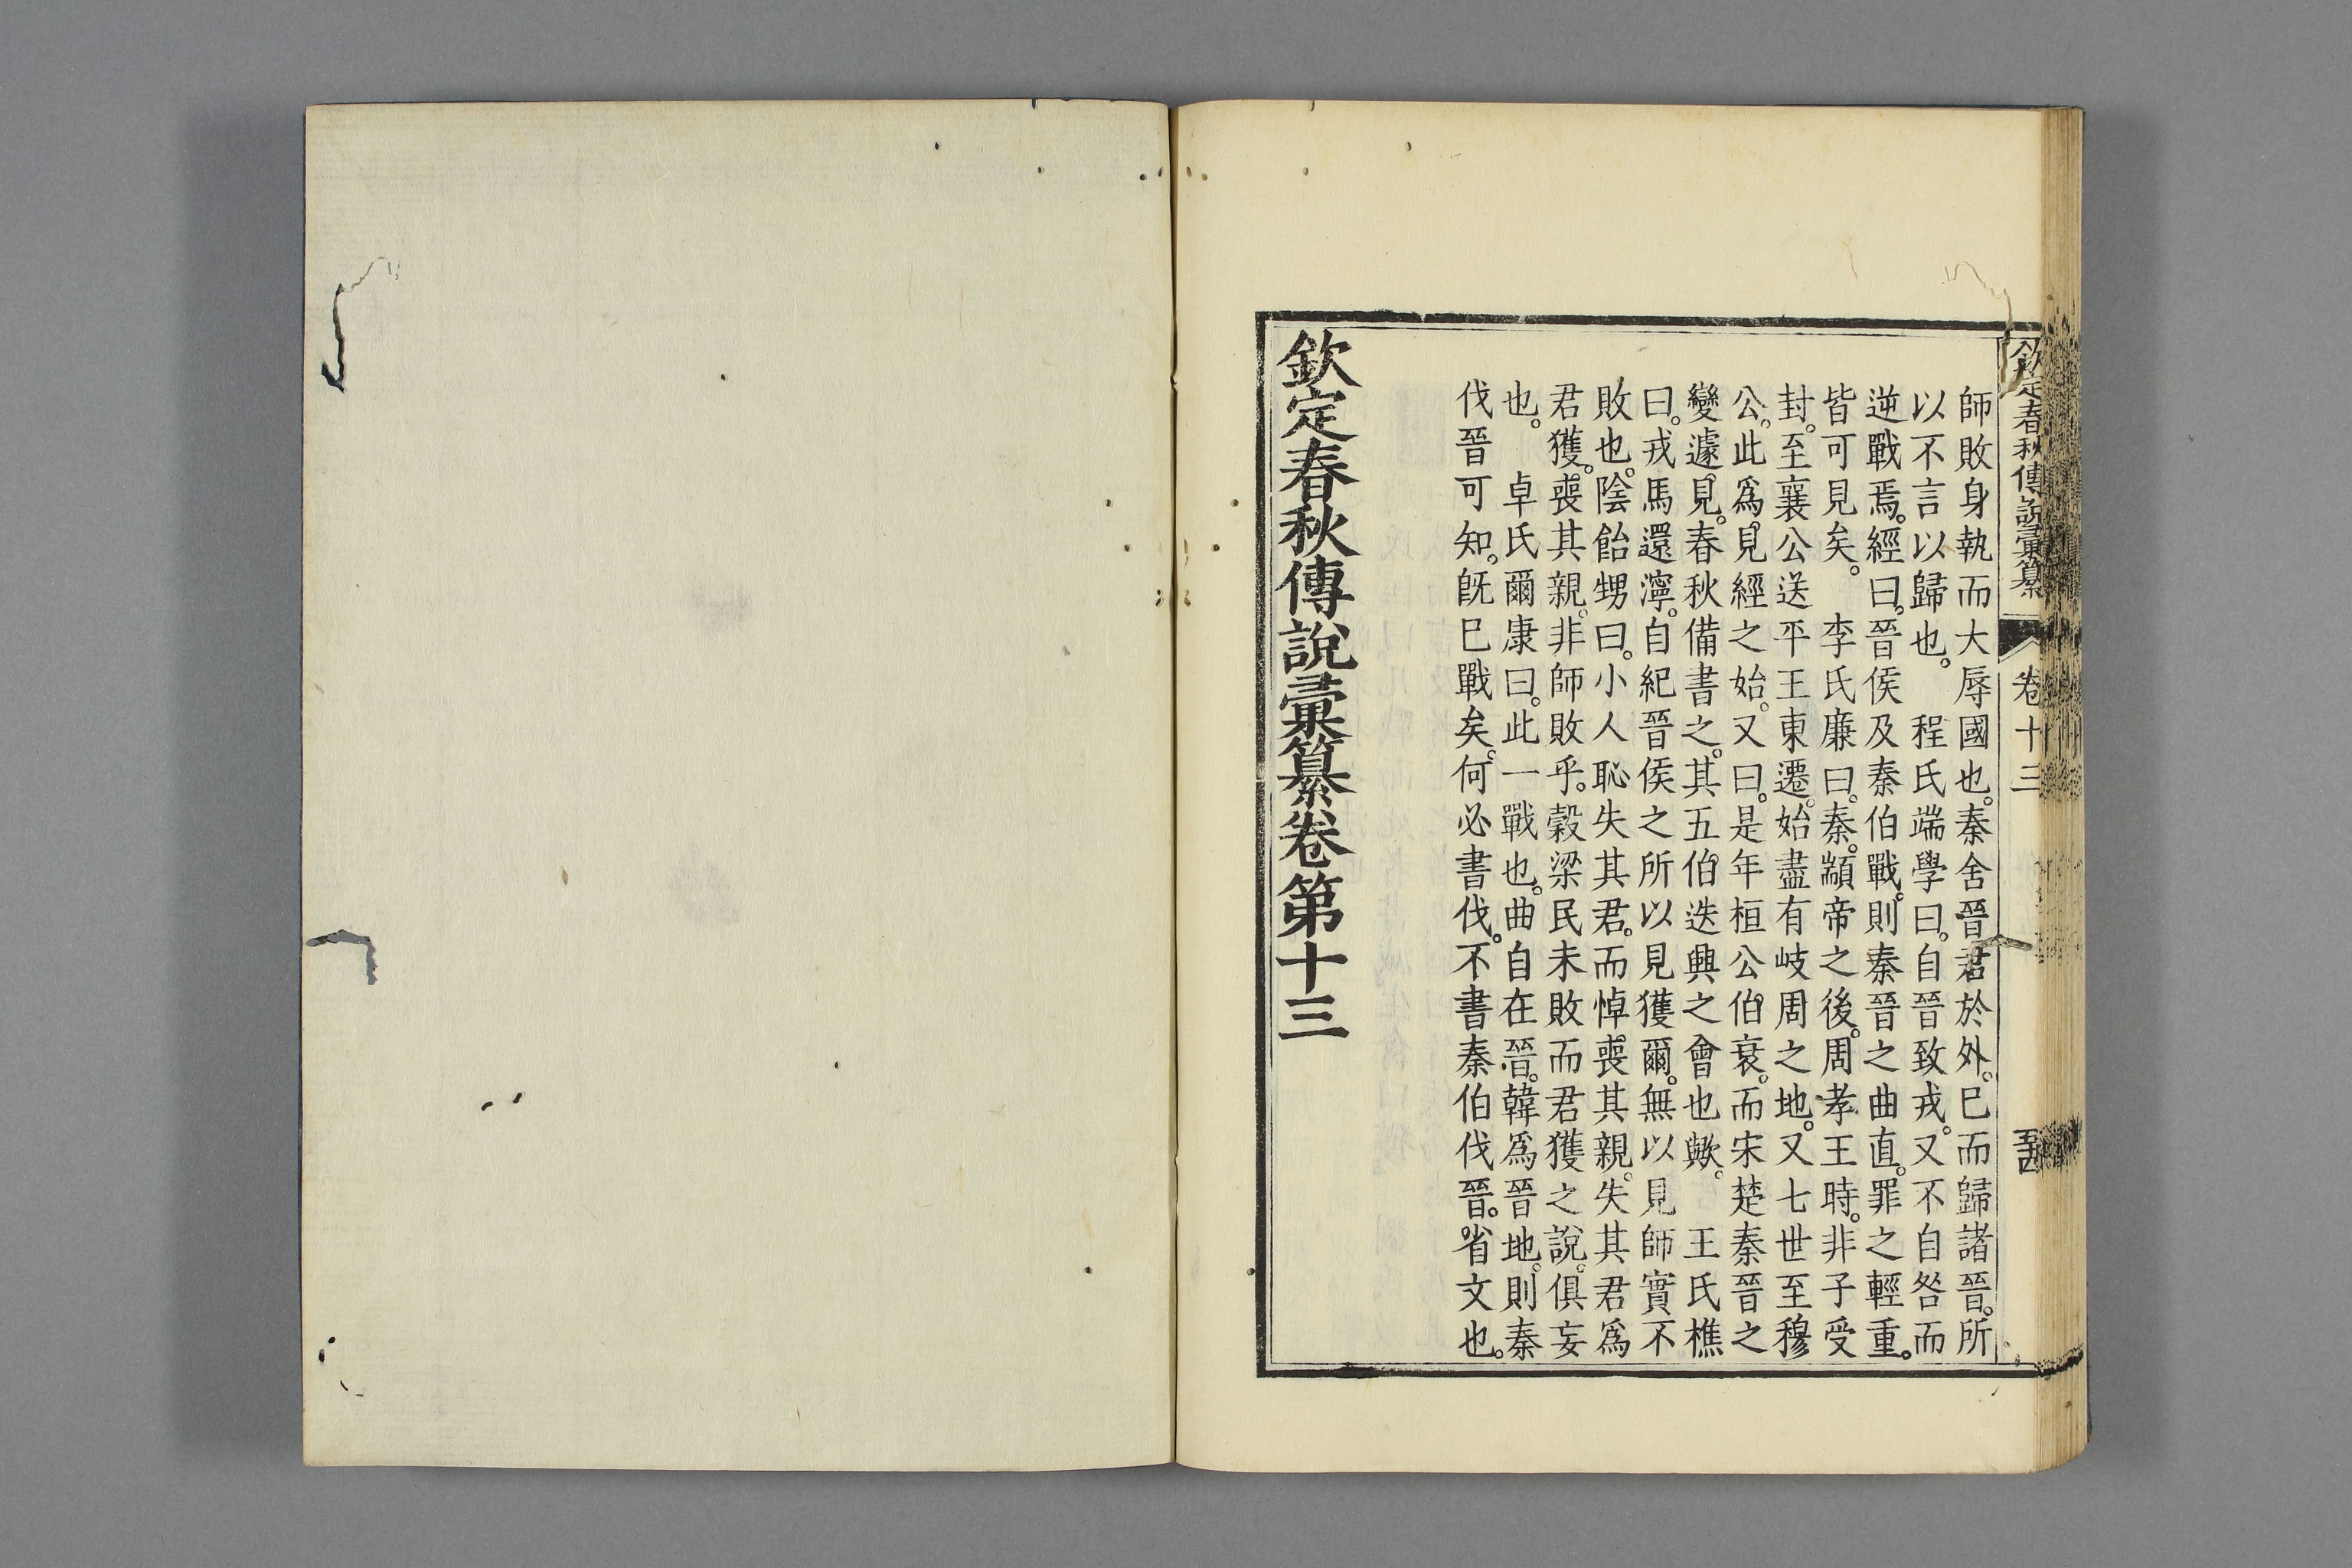 欽定春秋傳說彙纂 卷十三 五十四
師敗身執而大辱國也。秦舍晉君於外。已而歸諸晉。所
以不言以歸也。 程氏端學曰。自晉致戎。又不自咎而
逆戰焉。經曰。晉侯及秦伯戰。則秦晉之曲直。罪之輕重。
皆可見矣。 李氏廉曰。秦。顓帝之後。周孝王時。非子受
封。至襄公送平王東遷。始盡有岐周之地。又七世至穆
公。此爲見經之始。又曰。是年桓公伯衰。而宋楚秦晉之
變遽見。春秋備書之。其五伯迭興之會也歟。 王氏樵
曰。戎馬還濘。自紀晉侯之所以見獲爾。無以見師實不
敗也。陰飴甥曰。小人恥失其君。而悼喪其親。失其君爲
君獲。喪其親。非師敗乎。穀梁民未敗而君獲之說。俱妄
也。 卓氏爾康曰。此一戰也。曲自在晉。韓爲晉地。則秦
伐晉可知。旣巳戰矣。何必書伐。不書秦伯伐晉。省文也。
欽定春秋傳說彙纂卷第十三